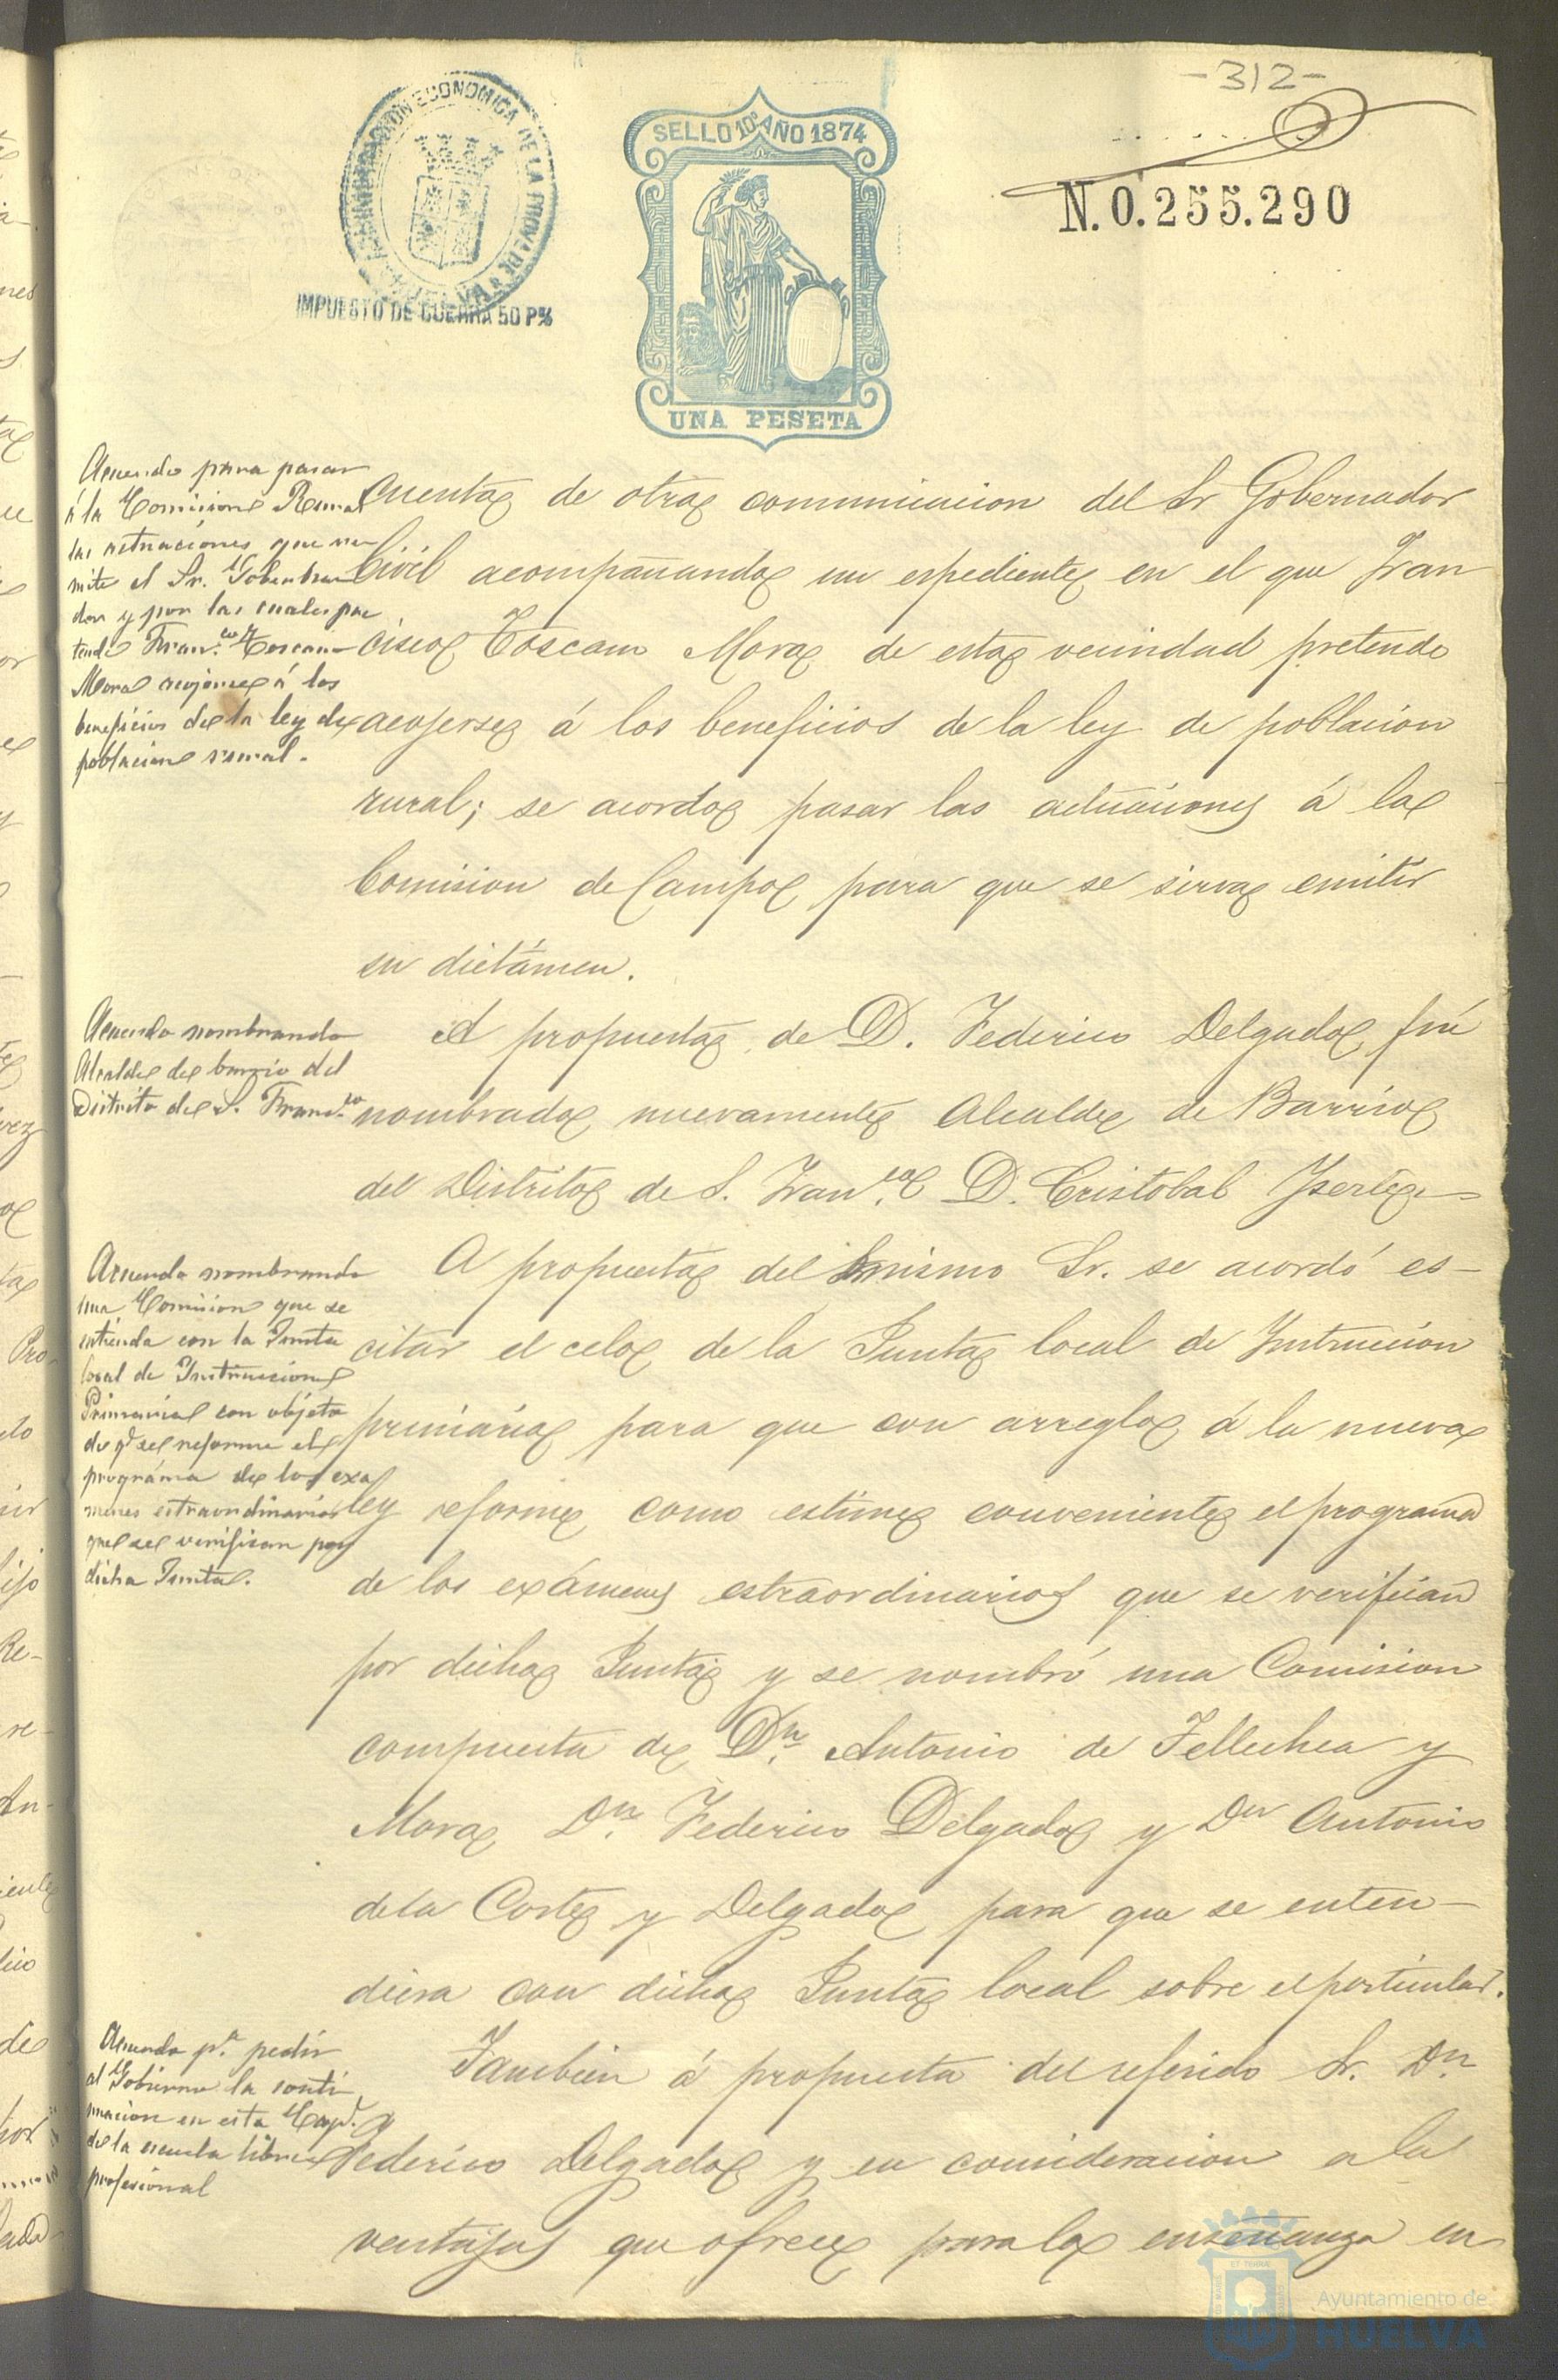 -312-
ADMINISTRACION ECONOMICA DE LA PROV. DE HUELVA
IMPUESTO DE GUERRA 50 P%
SELLO 10º AÑO 1874
UNA PESETA
N. 0.255.290
Acuerdo para pasar
á la Comision Rural
las actuaciones que re
mite el Sr. Goberna
dor y por las cuales pre
tende Fran.co Toscano
Mora acojerse á los
beneficios de la ley de
poblacion rural.
cuenta de otra comunicacion del Sr Gobernador
Civil acompañando un espediente en el que Fran
cisco Toscano Mora de esta vecindad pretende
acojerse á los beneficios de la ley de poblacion
rural; se acordo pasar las actuaciones á la
Comision de Campo para que se sirva emitir
su dictámen.
Acuerdo nombrando
Alcalde de barrio del
Distrito de S. Fran.co
A propuesta de D. Federico Delgado fué
nombrado nuevamente Alcalde de Barrio
del Distrito de S. Fran.co D. Cristobal
Acuerdo nombrando
una Comision que se
entienda con la Junta
local de Instruccion
Primaria con objeto
de q.e se reforme el
programa de los exa
menes estraordinarios
que se verifican por
dicha Junta.
A propuesta del mismo Sr. se acordó es-
citar el celo de la Junta local de Instruccion
primaria para que con arreglo á la nueva
ley reforme como estime conveniente el programa
de los exámenes estraordinarios que se verifican
por dicha Junta y se nombró una Comision
compuesta de D.n Antonio de Tellechea y
Mora D.n Federico Delgado y Dn Antonio
de la Corte y Delgado para que se enten-
diera con dicha Junta local sobre el particular.
Acuerdo p.a pedir
al Gobierno la conti
nuacion en esta Cap.l
de la escuela libre
profesional
Tambien á propuesta del referido Sr. Dn.
Federico Delgado y en consideracion a la
ventajas que ofrece para la enseñanza en
Ayuntamiento de
HUELVA